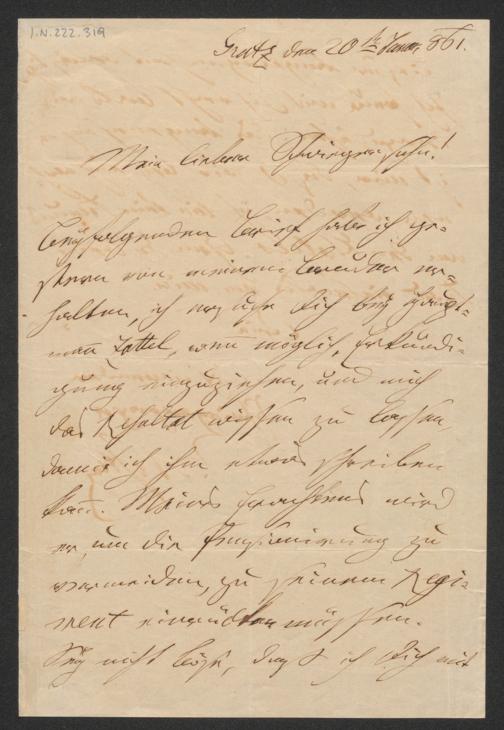 I.N. 222.319
Gratz den 20te Januar 861.
Mein lieber Schwiegersohn!
Beyfolgenden Brief habe ich ge-
stern von meinem Bruder er-
halten, ich ersuche Dich bey Haupt-
mann Zottel, wenn möglich, Erkundi-
gung einzuziehen, und mich
das Resultat wissen zu lassen,
damit ich ihm etwas schreiben
kann. Meines Erachtens wird
er, um die Pensionirung zu
vermeiden, zu seinem Regi-
ment einrücken müssen.
Sey nicht böse, daß ich Dich mit